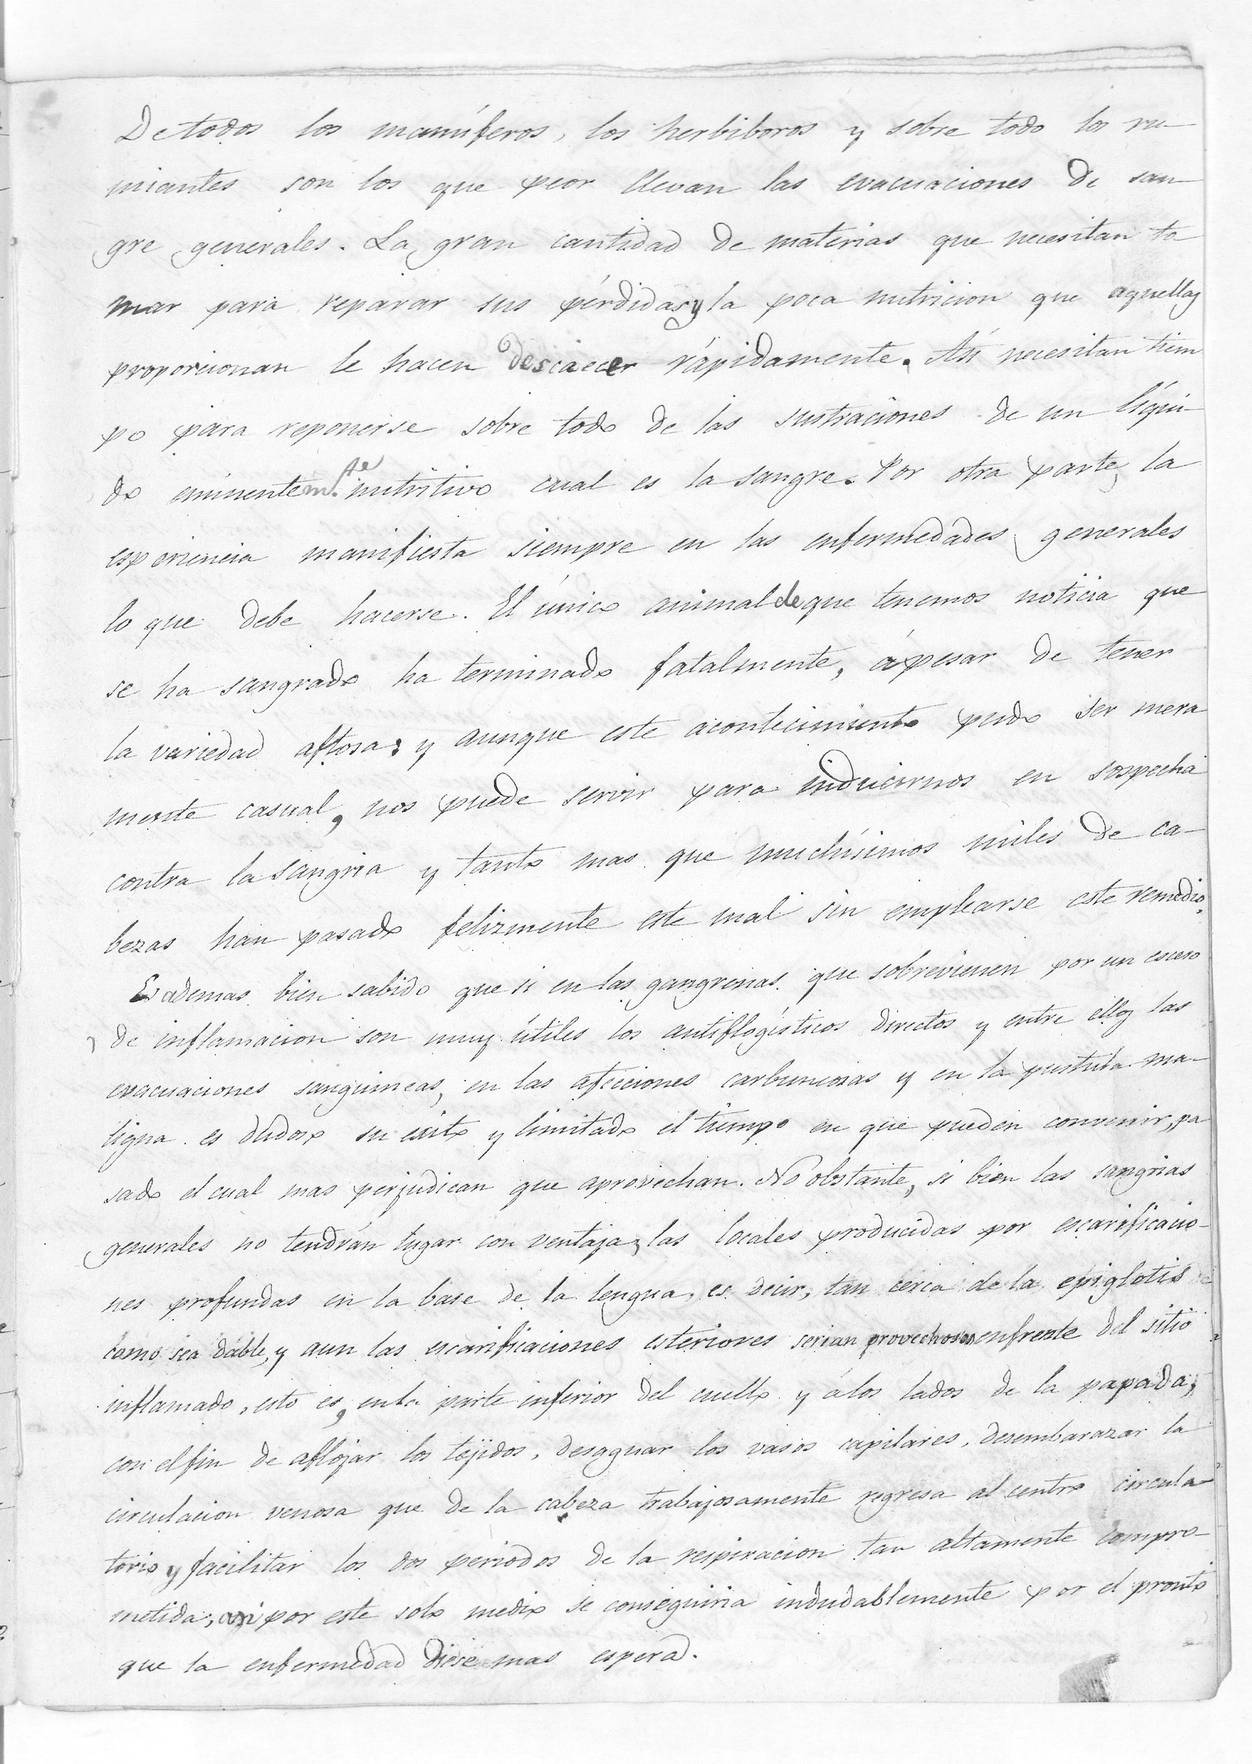 De todos los mamíferos, los herbiboros y sobre todo los ru-
miantes son los que peor llevan las evacuaciones de san-
gre generales. La gran cantidad de materias que necesitan to
mar para reparar sus pérdidas y la poca nutricion que aquellas
proporcionan le hacen descaecer rápidamente. Asi necesitan tiem
po para reponerse sobre todo de las sustraciones de un líqui-
do eminentemte. nutritivo cual es la sangre. Por otra parte, la
experiencia manifiesta siempre en las enfermedades generales
lo que debe hacerse. El único animal de que tenemos noticia que
se ha sangrado ha terminado fatalmente, ápesar de tener
la variedad aftosa; y aunque este acontecimiento pudo ser mera
mente casual, nos puede servir para inducirnos en sospecha
contra la sangria y tanto mas que muchísimos miles de ca-
bezas han pasado felizmente este mal sin emplearse este remedio.
Es ademas bien sabido que si en las gangrenas que sobrevienen por un esceso
de inflamacion son muy útiles los antiflogísticos directos y entre ellos las
evacuaciones sanguineas, en las afecciones carbuncosas y en la pustula ma-
ligna es dudoso su éxito y limitado el tiempo en que pueden convenir, pa
sado el cual mas perjudican que aprovechan. No obstante, si bien las sangrias
generales no tendrán lugar con ventaja, las locales producidas por escarificacio-
nes profundas en la base de la lengua, es decir, tan cerca de la epiglotis
como sea dáble, y aun las escarificaciones esteriores serian provechosas enfrente del sitio
inflamado, esto es, en la parte inferior del cuello y á los lados de la papada,
con el fin de aflojar los tejidos, desaguar los vasos capilares, desembarazar la
circulacion venosa que de la cabeza trabajosamente regresa al centro circula
torio y facilitar los dos periodos de la respiracion tan altamente compro-
metida, asi por este solo medio se conseguiria indudablemente por el pronto
que la enfermedad diese mas espera.